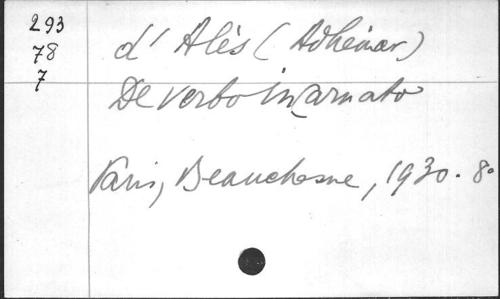 293
78
7
d'Alès (Adhémar)
De verbo incarnato
Paris, Beauchesne, 1930. 8º